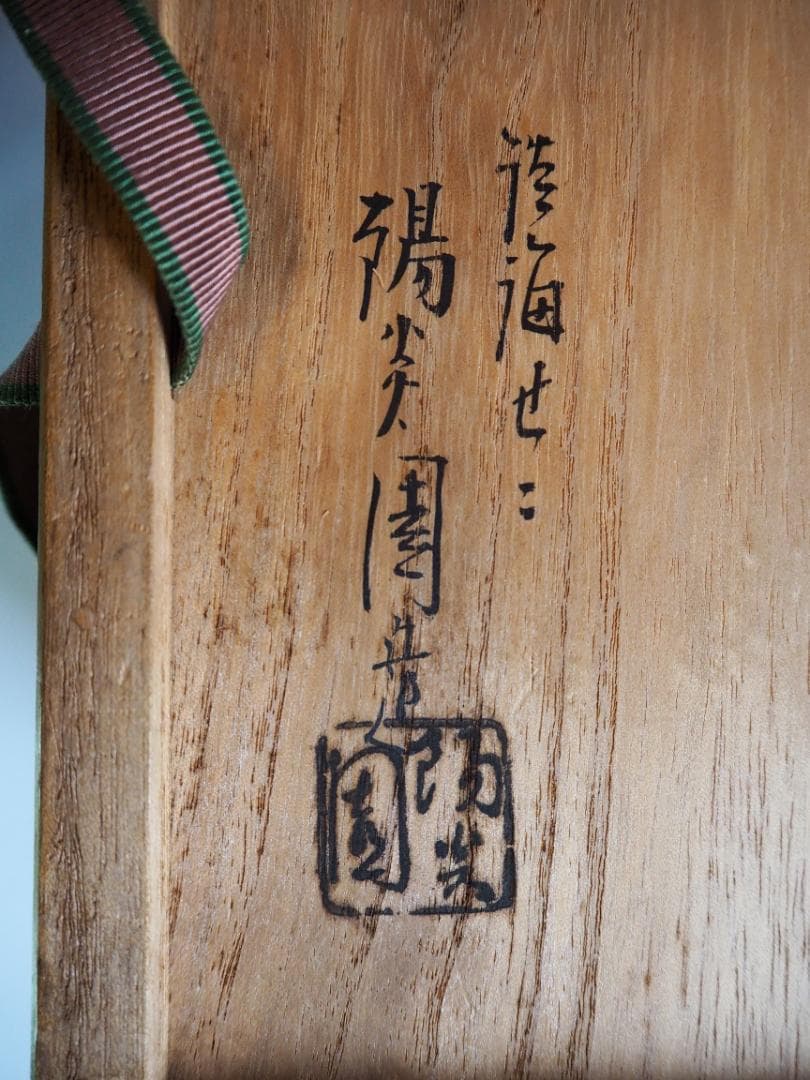 淡海せ〻
陽炎園造
陽炎
園